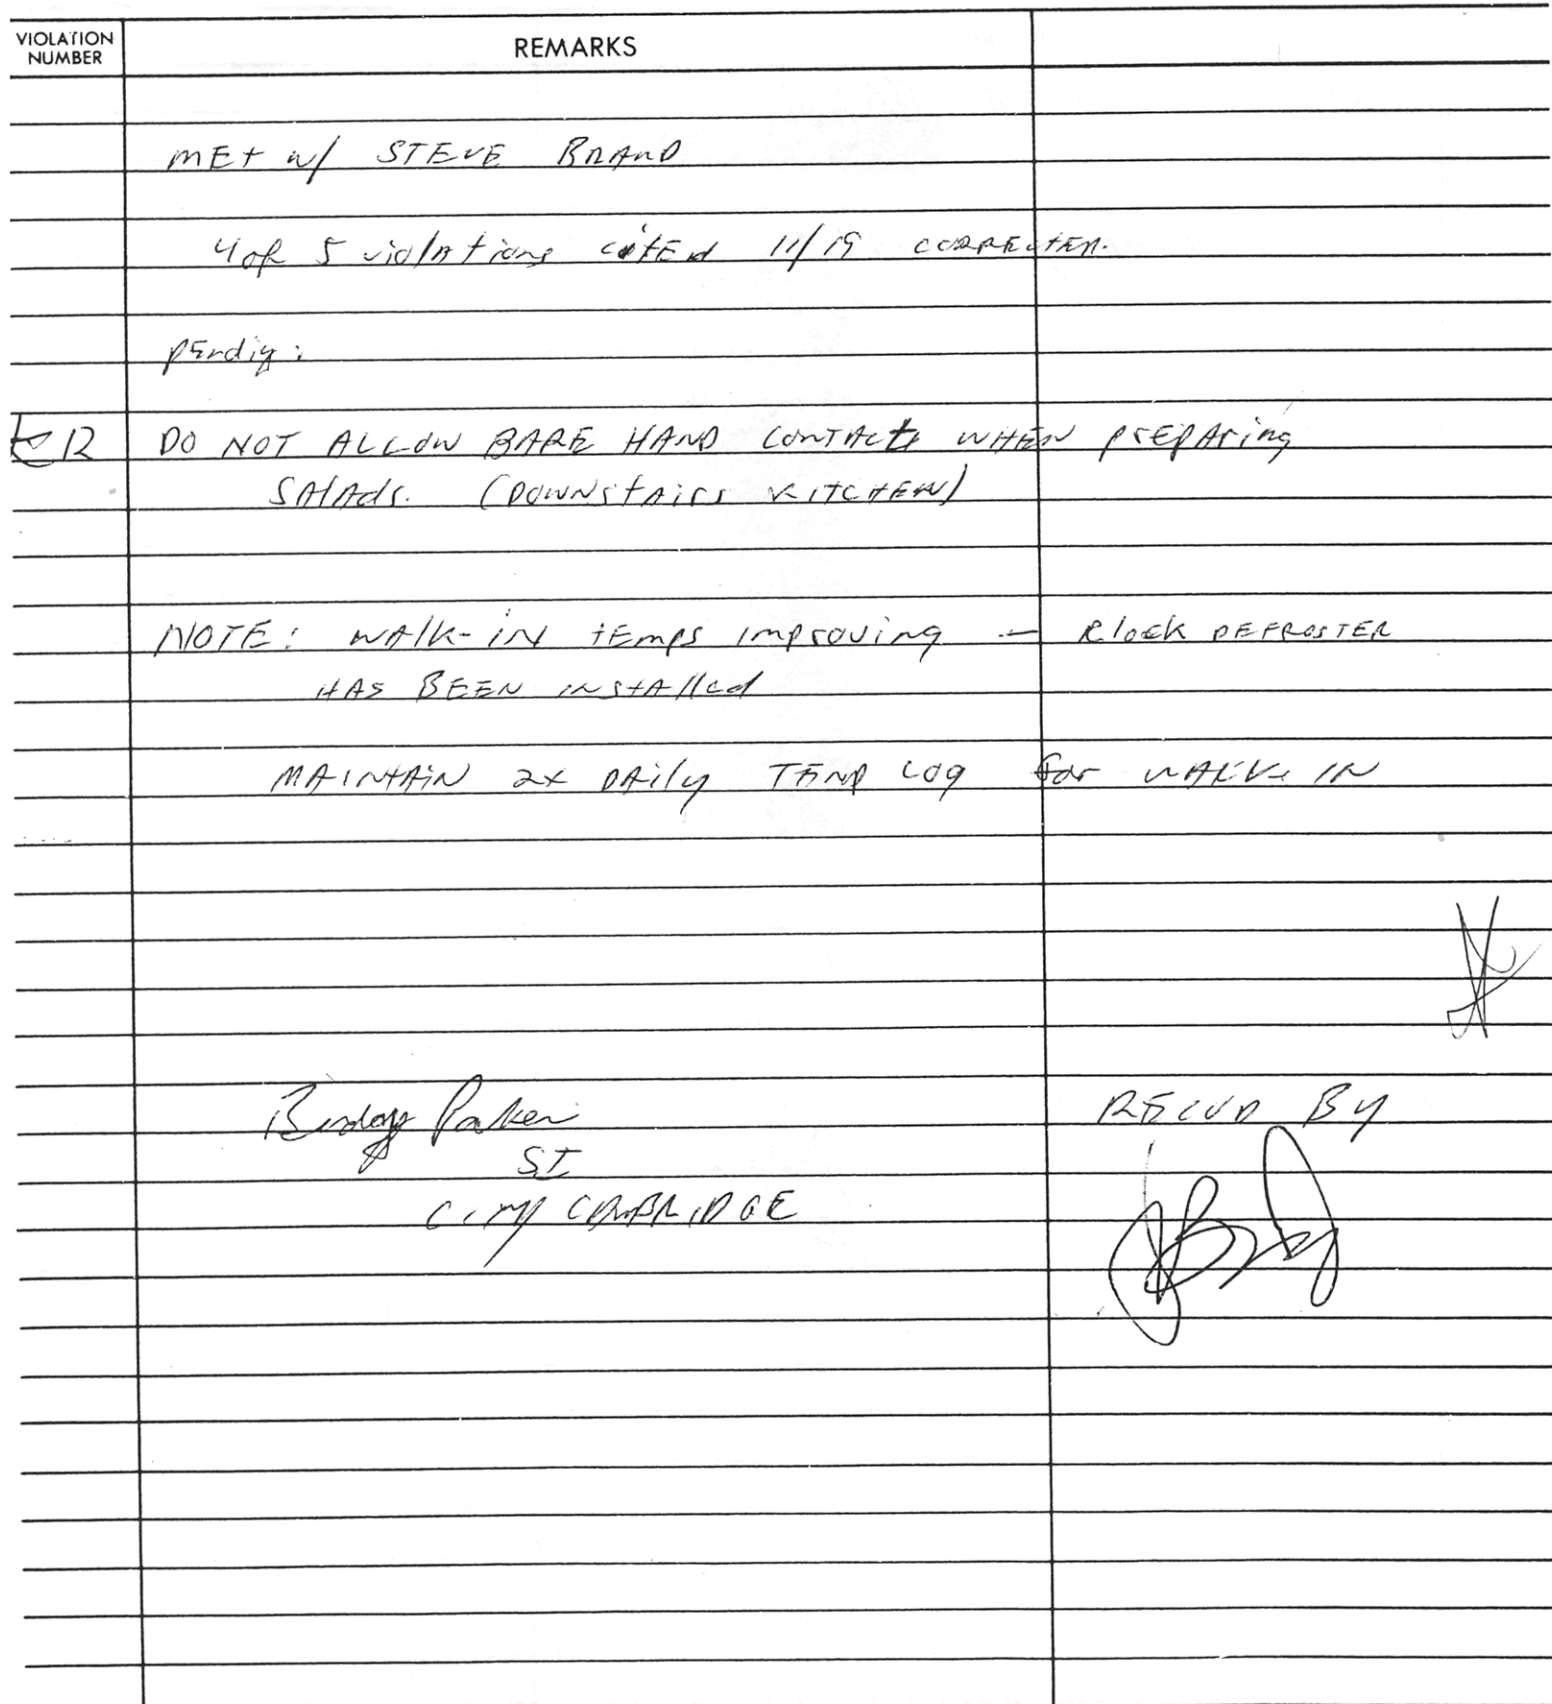 VIOLATION
NUMBER
REMARKS
MET w/ STEVE BRAND
4 of 5 violations cited 11/19 CORRECTED.
pendig:
12 DO NOT ALLOW BARE HAND CONTACT WHEN preparing
SALADS. (DOWNSTAIRS KITCHEN)
NOTE: WALK-IN TEMPS improving — DEFROSTER
HAS BEEN installed
MAINTAIN 2x DAily TEMP LOG for WALK-IN
Parker
SI
City CAMBRIDGE
RECVD BY